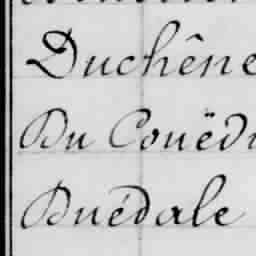 Duchêne
Du Couëdi
Duédale